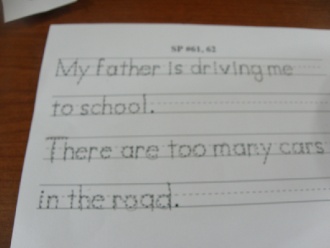 SP #61, 62
My father is driving me
to school.
There are too many cars
in the road.